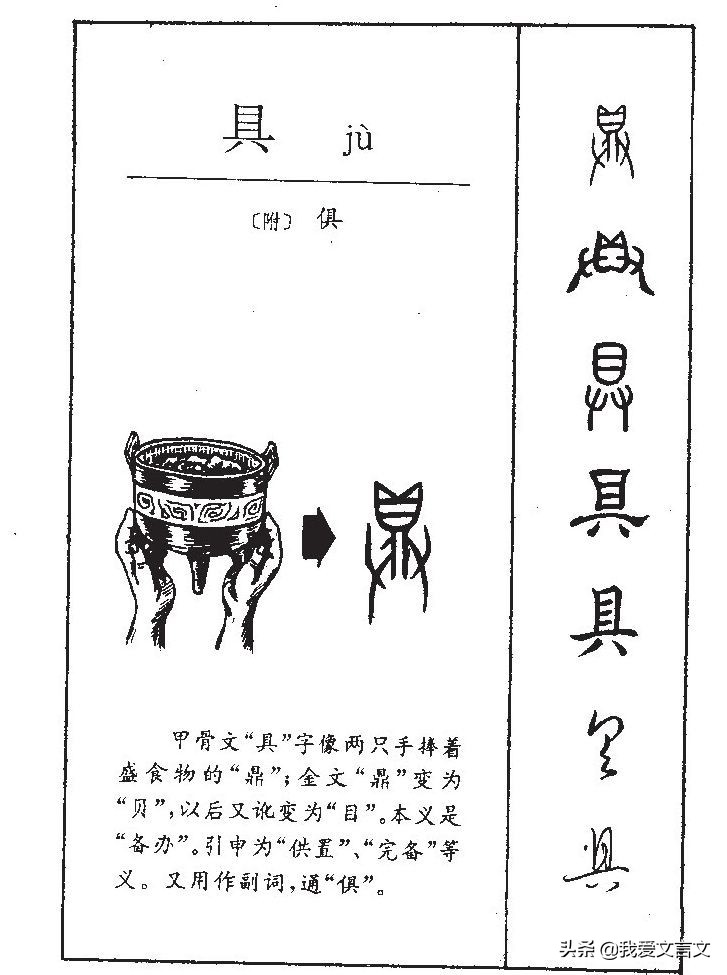 具 jù
〔附〕 俱
甲骨文“具”字像两只手捧着
盛食物的“鼎”；金文“鼎”变为
“贝”，以后又讹变为“目”。本义是
“备办”。引申为“供置”、“完备”等
义。又用作副词，通“俱”。
具
具
具
具
具
具
具
头条 @我爱文言文